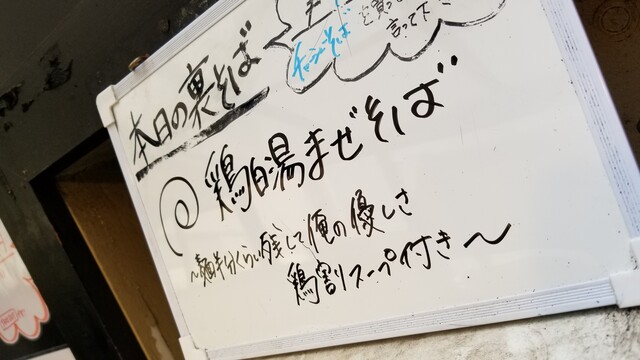 を買って
言って下さい
チャーシューそば
本日の裏そば
鶏白湯まぜそば
〜麺半分くらい残して俺の優しさ
鶏割りスープ付き〜